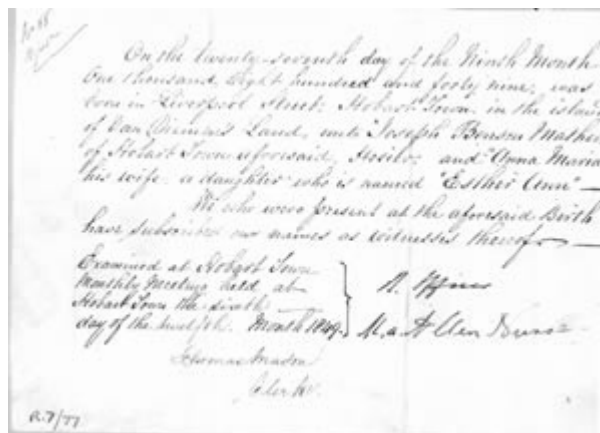 On the twenty-seventh day of the Ninth Month
One thousand Eight hundred and forty nine, was
born in Liverpool Street, Hobart Town, in the island
of Van Diemen's Land, unto Joseph Benson Mather
of Hobart Town aforesaid, Hosier, and Anna Maria
his wife, a daughter who is named "Esther Ann" —
We who were present at the aforesaid Birth
have subscribed our names as witnesses thereof —
Examined at Hobart Town
Monthly Meeting held at
Hobart Town the sixth
day of the twelfth Month 1849.
Thomas Mason
Clerk.
R.7/77